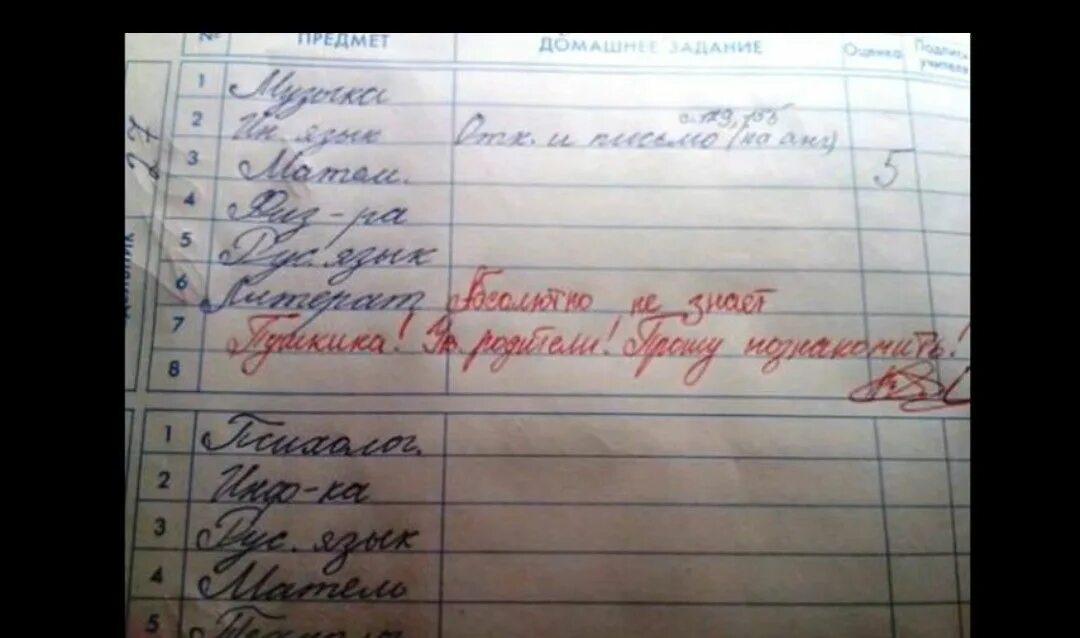 № ПРЕДМЕТ ДОМАШНЕЕ ЗАДАНИЕ Оценка Подпись учителя
27
1 Музыка
2 Ин. язык Отк. и письмо (на анг)
3 Матем. 5
4 Физ-ра
5 Рус. язык
6 Литерат Абсолютно не знает
7 Пушкина! Ув. родители! Прошу познакомить!
8
1 Психолог.
2 Инф-ка
3 Рус. язык
4 Матем
5